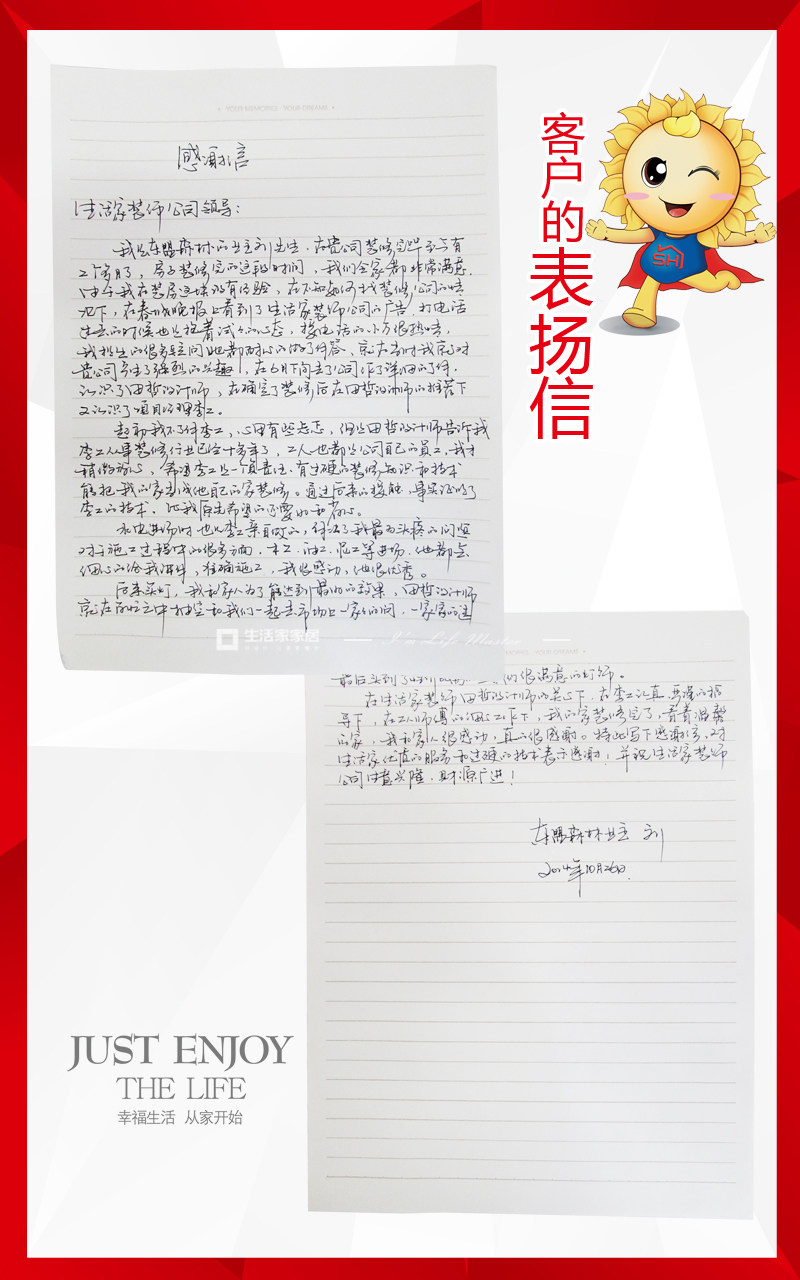 客户的表扬信
SH
感谢信
生活家装饰公司领导：
我是东盟森林的业主刘先生，在贵公司装修完毕至今有
2个多月了，房子装修完的这段时间，我们全家都非常满意。
由于我在装房这块没有经验，在不知如何找装修公司的情
况下，在春城晚报上看到了生活家装饰公司的广告，打电话
过去的时候也是抱着试一试的心态，接电话的小方很热情，
我提出的很多疑问她都耐心的做了解答，就在当时我就对
贵公司产生了强烈的兴趣，在6月下旬去了公司作了深入的了解，
认识了田哲设计师，在确定了装修后在田哲设计师的推荐下
又认识了项目经理李工。
起初我不了解李工，心里有些忐忑，但是田哲设计师告诉我
李工从事装修行业已经十多年了，工人也都是公司自己的员工，我才
稍微放心，希望李工是一个负责任、有过硬的装修知识和技术
能把我的家当成他自己的家装修。通过后来的接触，事实证明了
李工的技术，比我原先希望的还要好和省心。
水电进场时也是李工亲自做的，解决了我最为头疼的问题
对于施工过程中的很多方面，木工、油工、泥工等进场，他都会
细心的给我讲解，准确施工，我很感动，他很优秀。
后来买灯，我和家人为了能达到最好的效果，田哲设计师
就在百忙之中抽空和我们一起去市场上一家家的问，一家家的选
生活家家居
I'm Life Master
最后买到了我们很满意的灯饰。
在生活家装饰田哲设计师的关心下，在李工认真、严谨的指
导下，在工人师傅的细心工作下，我的家装修完了，看着温馨
的家，我和家人很感动，真的很感谢。特此写下感谢信，对
生活家优质的服务和过硬的技术表示感谢！并祝生活家装饰
公司生意兴隆、财源广进！
东盟森林业主 刘
2014年10月26日
JUST ENJOY
THE LIFE
幸福生活 从家开始